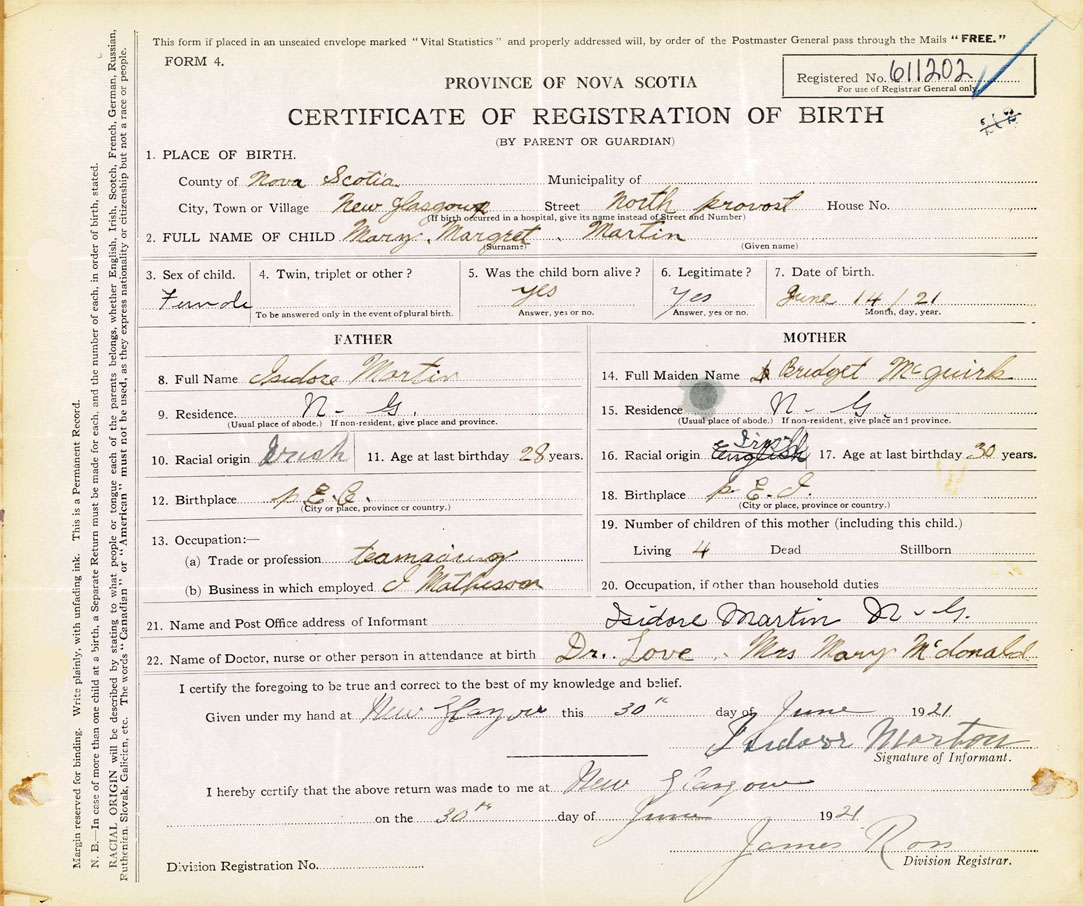 This form if placed in an unsealed envelope marked "Vital Statistics" and properly addressed will, by order of the Postmaster General pass through the Mails "FREE."
FORM 4.
Registered No. 611202
For use of Registrar General only.
PROVINCE OF NOVA SCOTIA
CERTIFICATE OF REGISTRATION OF BIRTH
(BY PARENT OR GUARDIAN)
1. PLACE OF BIRTH.
County of Nova Scotia Municipality of
City, Town or Village New Glasgow Street North provost House No.
(If birth occurred in a hospital, give its name instead of Street and Number)
2. FULL NAME OF CHILD Mary Margret Martin
(Surname) (Given name)
3. Sex of child. 4. Twin, triplet or other? 5. Was the child born alive? 6. Legitimate? 7. Date of birth.
Female yes Yes June 14/21
To be answered only in the event of plural birth. Answer, yes or no. Answer, yes or no. Month, day, year.
FATHER
8. Full Name Isidore Martin
9. Residence. N - G.
(Usual place of abode.) If non-resident, give place and province.
10. Racial origin Irish 11. Age at last birthday 28 years.
12. Birthplace p. E. I.
(City or place, province or country.)
13. Occupation:—
(a) Trade or profession
(b) Business in which employed I Matheson
MOTHER
14. Full Maiden Name Bridget McGuirk
15. Residence N - G.
(Usual place of abode.) If non-resident, give place and province.
16. Racial origin English Irish 17. Age at last birthday 30 years.
18. Birthplace p. E. I.
(City or place, province or country.)
19. Number of children of this mother (including this child.)
Living 4 Dead Stillborn
20. Occupation, if other than household duties
21. Name and Post Office address of Informant Isidore Martin N - G.
22. Name of Doctor, nurse or other person in attendance at birth Dr. Love . Mrs Mary McDonald
I certify the foregoing to be true and correct to the best of my knowledge and belief.
Given under my hand at New Glasgow this 30th day of June 1921
Isidore Martin
Signature of Informant.
I hereby certify that the above return was made to me at New Glasgow
on the 30th day of June 1921
James Ross
Division Registrar.
Division Registration No.
Margin reserved for binding. Write plainly, with unfading ink. This is a Permanent Record.
N. B.—In case of more than one child at a birth, a Separate Return must be made for each, and the number of each, in order of birth, stated.
RACIAL ORIGIN will be described by stating to what people or tongue each of the parents belongs, whether English, Irish, Scotch, French, German, Russian,
Ruthenian, Slovak, Galician, etc. The words "Canadian" or "American" must not be used, as they express nationality or citizenship but not a race or people.